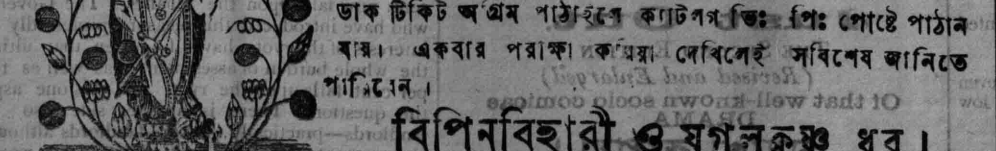 ডাক টিকিট অগ্রিম পাঠাইলে ক্যাটলগ ভিঃ পিঃ পোষ্টে পাঠান
যায়। একবার পরীক্ষা করিয়া দেখিলেই সবিশেষ জানিতে
পারিবেন।
বিপিনবিহারী ও যুগলকৃষ্ণ ধর।